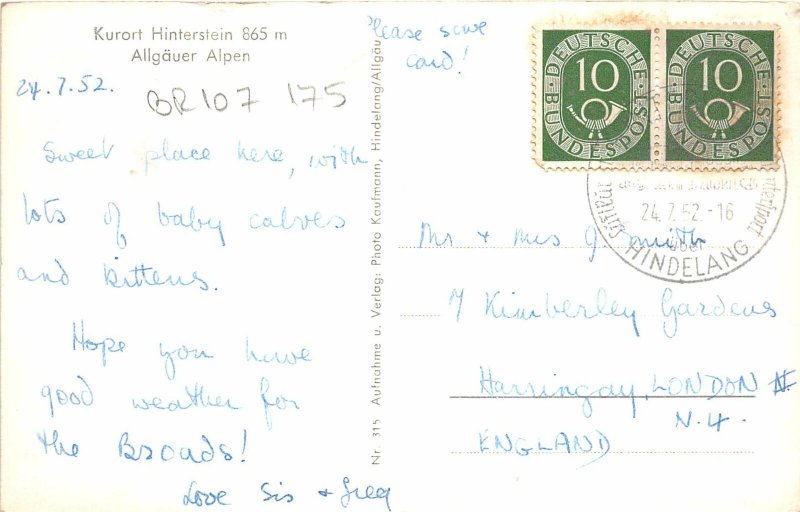 Kurort Hinterstein 865 m
Allgäuer Alpen
24.7.52.
BR107 175
Sweet place here, with
lots of baby calves
and kittens.
Hope you have
good weather for
the Broads!
Love Sis + Greg
Nr. 315 Aufnahme u. Verlag: Photo Kaufmann, Hindelang/Allgäu
Please save
card!
DEUTSCHE BUNDESPOST
10
DEUTSCHE BUNDESPOST
10
24.7.52.-16
HINDELANG
Mr + Mrs J. Smith
7 Kimberley Gardens
Harringay, LONDON
N.4.
ENGLAND